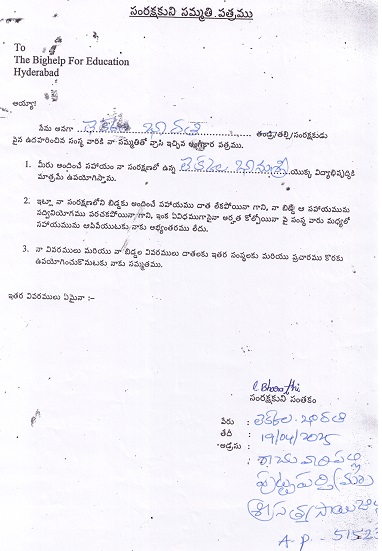 సంరక్షకుని సమ్మతి పత్రము
To
The Bighelp For Education
Hyderabad
అయ్యా!
నేను అనగా లెక్కల భారతి తండ్రి/తల్లి/సంరక్షకుడు
పైన ఉదహరించిన సంస్థ వారికి నా సమ్మతితో వ్రాసి ఇచ్చిన అంగీకార పత్రము.
1. మీరు అందించే సహాయం నా సంరక్షణలో ఉన్న లెక్కల యొక్క విద్యాభివృద్ధికి
మాత్రమే ఉపయోగిస్తాను.
2. ఇట్లా, నా సంరక్షణలోని బిడ్డకు అందించే సహాయము దాత లేకపోయినా గాని, నా బిడ్డ ఆ సహాయమును
సద్వినియోగము పరచకపోయినా గాని, ఇంక ఏవిధముగానైనా అర్హత కోల్పోయినా పై సంస్థ వారు మధ్యలో
సహాయమును ఆపివేయుటకు నాకు అభ్యంతరము లేదు.
3. నా వివరములు మరియు నా బిడ్డల వివరములు దాతలకు ఇతర సంస్థలకు మరియు ప్రచారము కొరకు
ఉపయోగించుకొనుటకు నాకు సమ్మతము.
ఇతర వివరములు ఏమైనా :-
L Bharathi
సంరక్షకుని సంతకం
పేరు : లెక్కల భారతి
తేదీ : 19/04/2025
అడ్రసు :
పుట్టపర్తి (మం)
శ్రీ సత్య సాయి జి
A.P - 51523